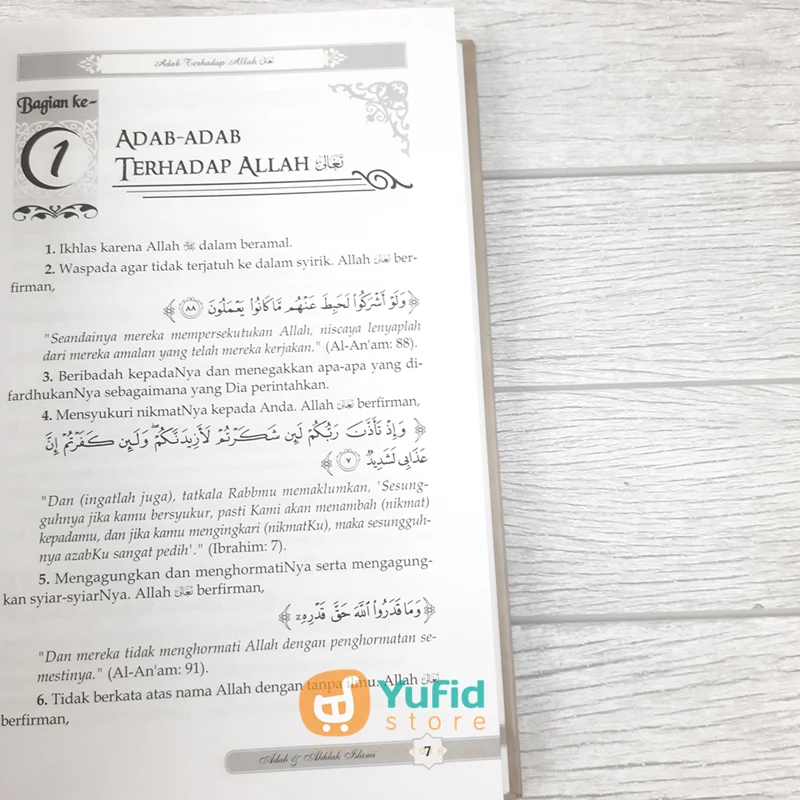 Adab Terhadap Allah ﷻ
Bagian ke-
1
ADAB-ADAB
TERHADAP ALLAH تَعَالَى
1. Ikhlas karena Allah ﷻ dalam beramal.
2. Waspada agar tidak terjatuh ke dalam syirik. Allah تَعَالَى ber-
firman,
﴿ وَلَوْ أَشْرَكُوا۟ لَحَبِطَ عَنْهُم مَّا كَانُوا۟ يَعْمَلُونَ ٨٨ ﴾
"Seandainya mereka mempersekutukan Allah, niscaya lenyaplah
dari mereka amalan yang telah mereka kerjakan." (Al-An'am: 88).
3. Beribadah kepadaNya dan menegakkan apa-apa yang di-
fardhukanNya sebagaimana yang Dia perintahkan.
4. Mensyukuri nikmatNya kepada Anda. Allah تَعَالَى berfirman,
﴿ وَإِذْ تَأَذَّنَ رَبُّكُمْ لَئِن شَكَرْتُمْ لَأَزِيدَنَّكُمْ ۖ وَلَئِن كَفَرْتُمْ إِنَّ
عَذَابِى لَشَدِيدٌ ٧ ﴾
"Dan (ingatlah juga), tatkala Rabbmu memaklumkan, 'Sesung-
guhnya jika kamu bersyukur, pasti Kami akan menambah (nikmat)
kepadamu, dan jika kamu mengingkari (nikmatKu), maka sesungguh-
nya azabKu sangat pedih'." (Ibrahim: 7).
5. Mengagungkan dan menghormatiNya serta mengagung-
kan syiar-syiarNya. Allah تَعَالَى berfirman,
﴿ وَمَا قَدَرُوا۟ ٱللَّهَ حَقَّ قَدْرِهِۦٓ ﴾
"Dan mereka tidak menghormati Allah dengan penghormatan se-
mestinya." (Al-An'am: 91).
6. Tidak berkata atas nama Allah dengan tanpa ilmu. Allah تَعَالَى
berfirman,
YuFid
store
Adab & Akhlak Islami
7